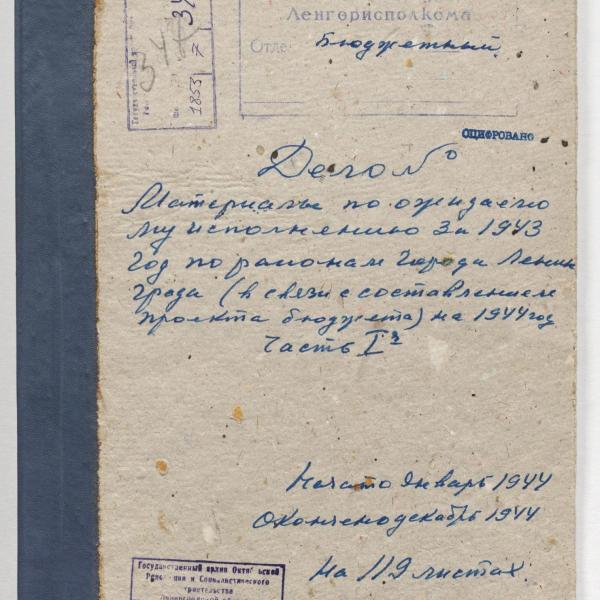 Ленгорисполкома
Отде
Бюджетный
344
1853 7 34
ОЦИФРОВАНО
Дело №
Материалы по ожидаемо
му исполнению за 1943
год по районам города Ленин
града (в связи с составлением
проекта бюджета) на 1944 год
Часть I я
Начато январь 1944
Окончено декабрь 1944
На 119 листах.
Государственный архив Октябрьской
Революции и Социалистического
строительства